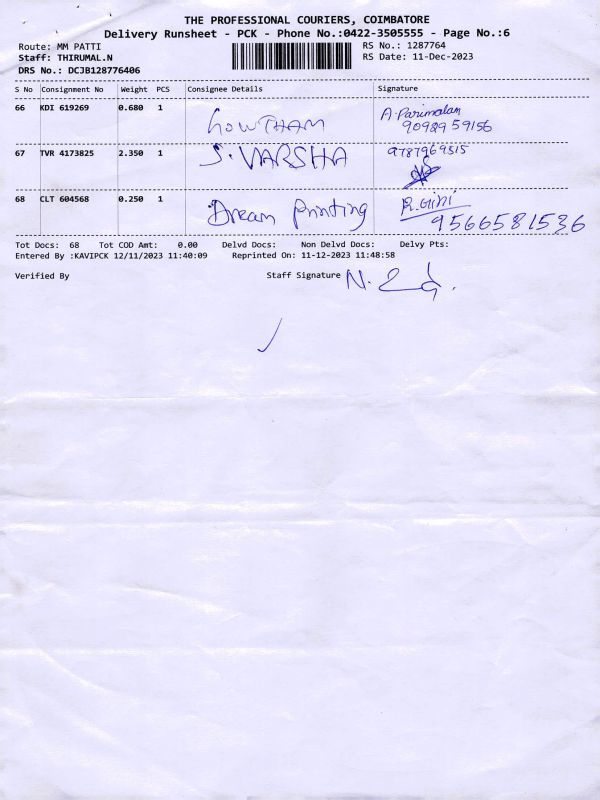 THE PROFESSIONAL COURIERS, COIMBATORE
Delivery Runsheet - PCK - Phone No.:0422-3505555 - Page No.:6
Route: MM PATTI RS No.: 1287764
Staff: THIRUMAL.N RS Date: 11-Dec-2023
DRS No.: DCJB128776406
S No Consignment No Weight PCS Consignee Details Signature
66 KDI 619269 0.680 1 GOWTHAM A. Parimalam
90989 59156
67 TVR 4173825 2.350 1 S. VARSHA 9787969515
68 CLT 604568 0.250 1 Dream Printing R. Gini
9566581536
Tot Docs: 68 Tot COD Amt: 0.00 Delvd Docs: Non Delvd Docs: Delvy Pts:
Entered By :KAVIPCK 12/11/2023 11:40:09 Reprinted On: 11-12-2023 11:48:58
Verified By Staff Signature N.